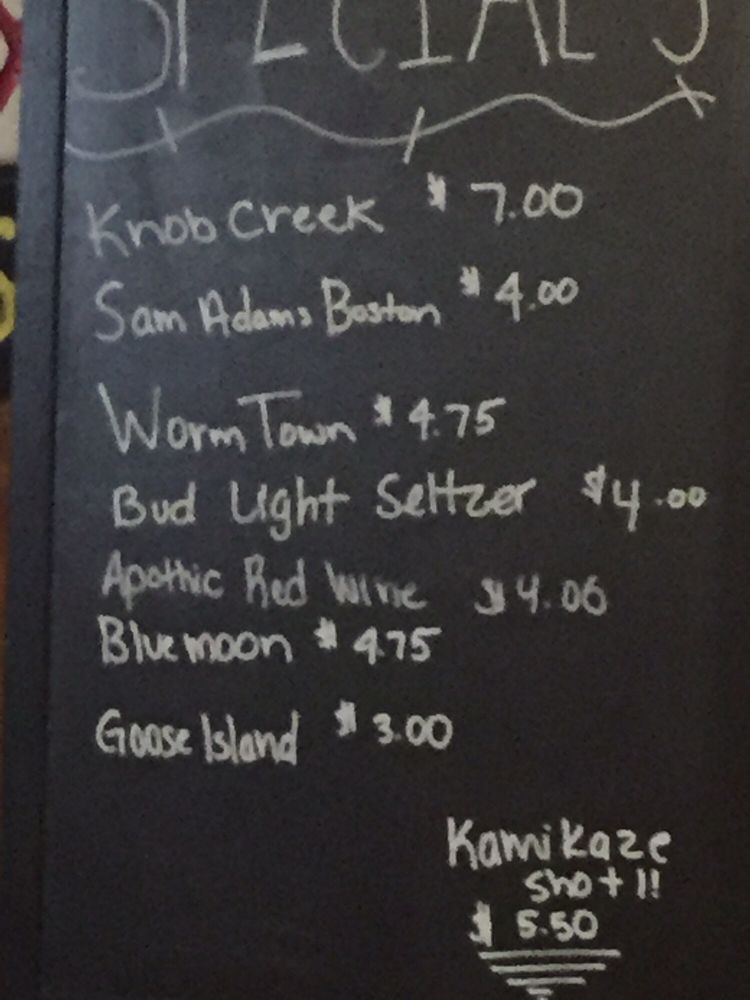 SPECIAL'S
Knob Creek $ 7.00
Sam Adams Boston $ 4.00
Worm Town $ 4.75
Bud Light Seltzer $4.00
Apothic Red Wine $4.00
Blue moon $ 4.75
Goose Island $ 3.00
Kamikaze
Shot!!
$ 5.50